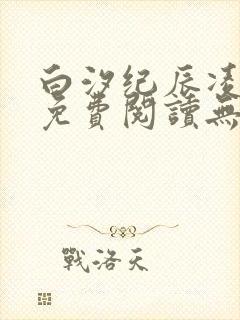 白汐纪辰凌
免費閱讀無
戰洛天